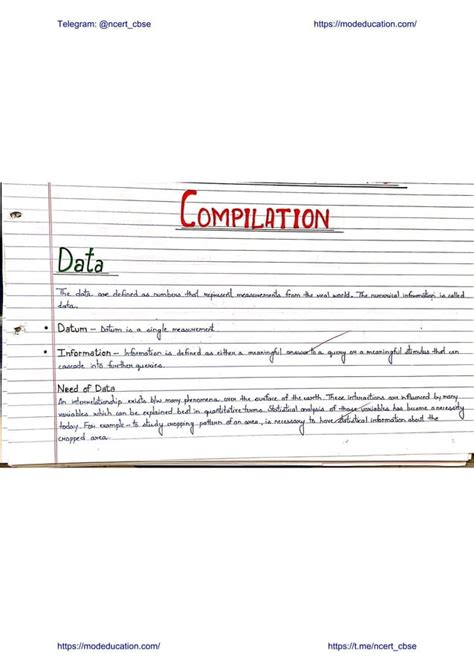 Telegram: @ncert_cbse https://modeducation.com/
COMPILATION
Data
The data are defined as numbers that represent measurements from the real world. The numerical information is called
data.
• Datum – Datum is a single measurement
• Information – Information is defined as either a meaningful answer to a query or a meaningful stimulus that can
cascade into further queries.
Need of Data
An interrelationship exists b/w many phenomena over the surface of the earth. These interactions are influenced by many
variables which can be explained best in quantitative terms. Statistical analysis of those variables has become a necessity
today. For example – to study cropping pattern of an area, is necessary to have statistical information about the
cropped area.
https://modeducation.com/ https://t.me/ncert_cbse